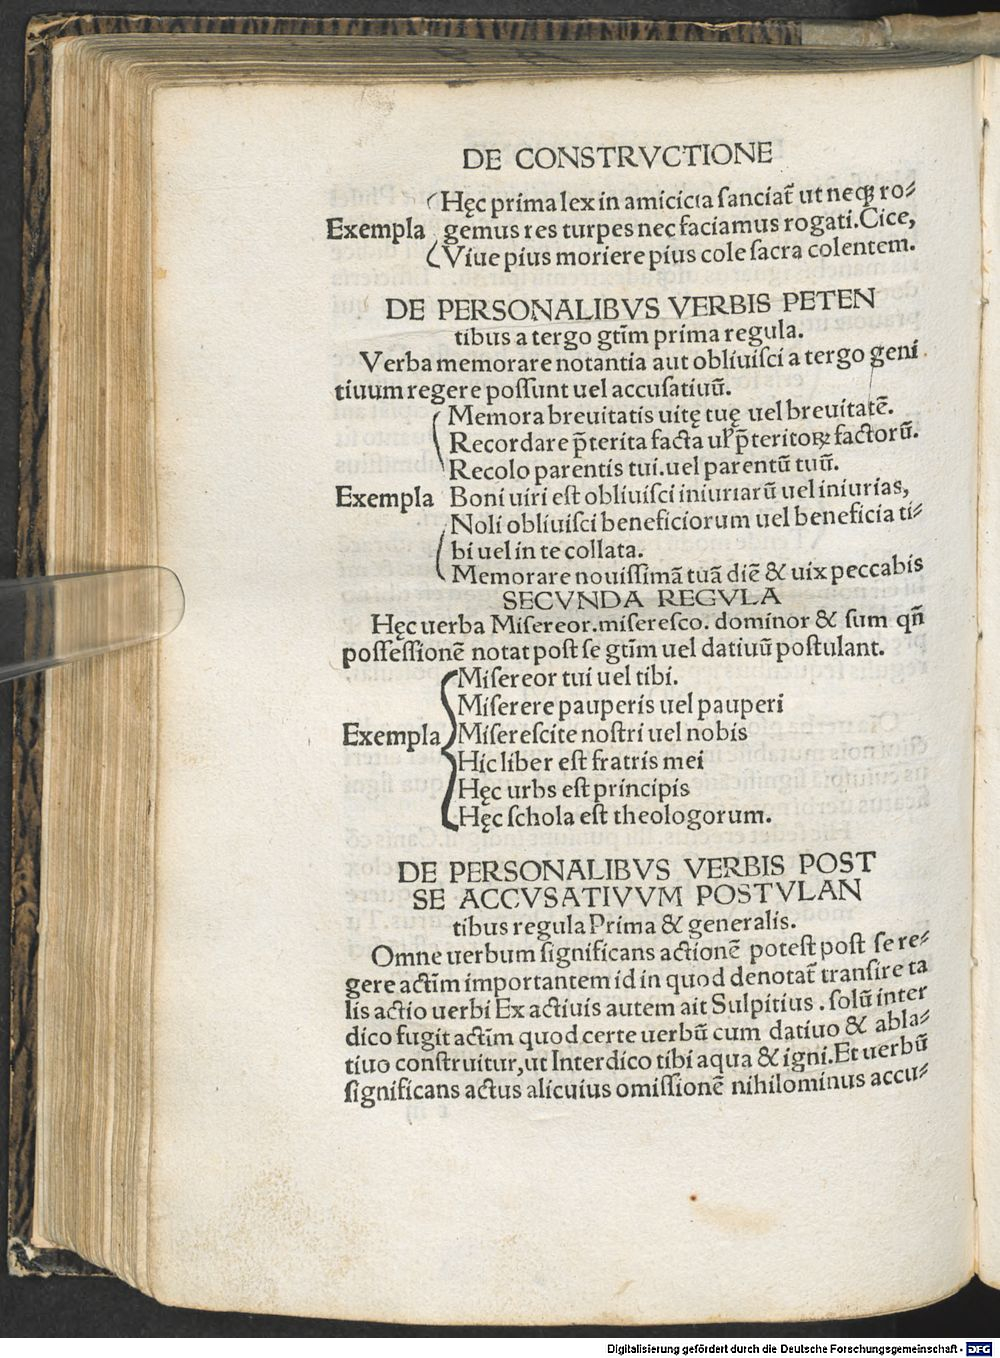 DE CONSTRVCTIONE
Hęc prima lex in amicicia ſanciat᷑ ut neqꝫ ro⸗
Exempla gemus res turpes nec faciamus rogati. Cice,
Viue pius moriere pius cole ſacra colentem.
DE PERSONALIBVS VERBIS PETEN
tibus a tergo gt̄m prima regula.
Verba memorare notantia aut obliuiſci a tergo geni
tiuum regere poſſunt uel accuſatiuū.
Memora breuitatis uitę tuę uel breuitatē.
Recordare p̄terita facta ul̓ p̄teritoꝝ factorū.
Recolo parentis tui. uel parentū tuū.
Exempla Boni uiri eſt obliuiſci iniuriarū uel iniurias,
Noli obliuiſci beneficiorum uel beneficia ti⸗
bi uel in te collata.
Memorare nouiſſimā tuā diē & uix peccabis
SECVNDA REGVLA
Hęc uerba Miſereor. miſereſco. dominor & ſum qn̄
poſſeſſionē notat poſt ſe gt̄im uel datiuū poſtulant.
Miſereor tui uel tibi.
Miſerere pauperis uel pauperi
Exempla Miſereſcite noſtri uel nobis
Hic liber eſt fratris mei
Hęc urbs eſt principis
Hęc ſchola eſt theologorum.
DE PERSONALIBVS VERBIS POST
SE ACCVSATIVVM POSTVLAN
tibus regula Prima & generalis.
Omne uerbum ſignificans actionē poteſt poſt ſe re⸗
gere actīm importantem id in quod denotat᷑ tranſire ta
lis actio uerbi Ex actiuis autem ait Sulpitius . ſolū inter
dico fugit actīm quod certe uerbū cum datiuo & abla⸗
tiuo conſtruitur, ut Interdico tibi aqua & igni. Et uerbū
ſignificans actus alicuius omiſſionē nihilominus accu⸗
Digitalisierung gefördert durch die Deutsche Forschungsgemeinschaft - DFG